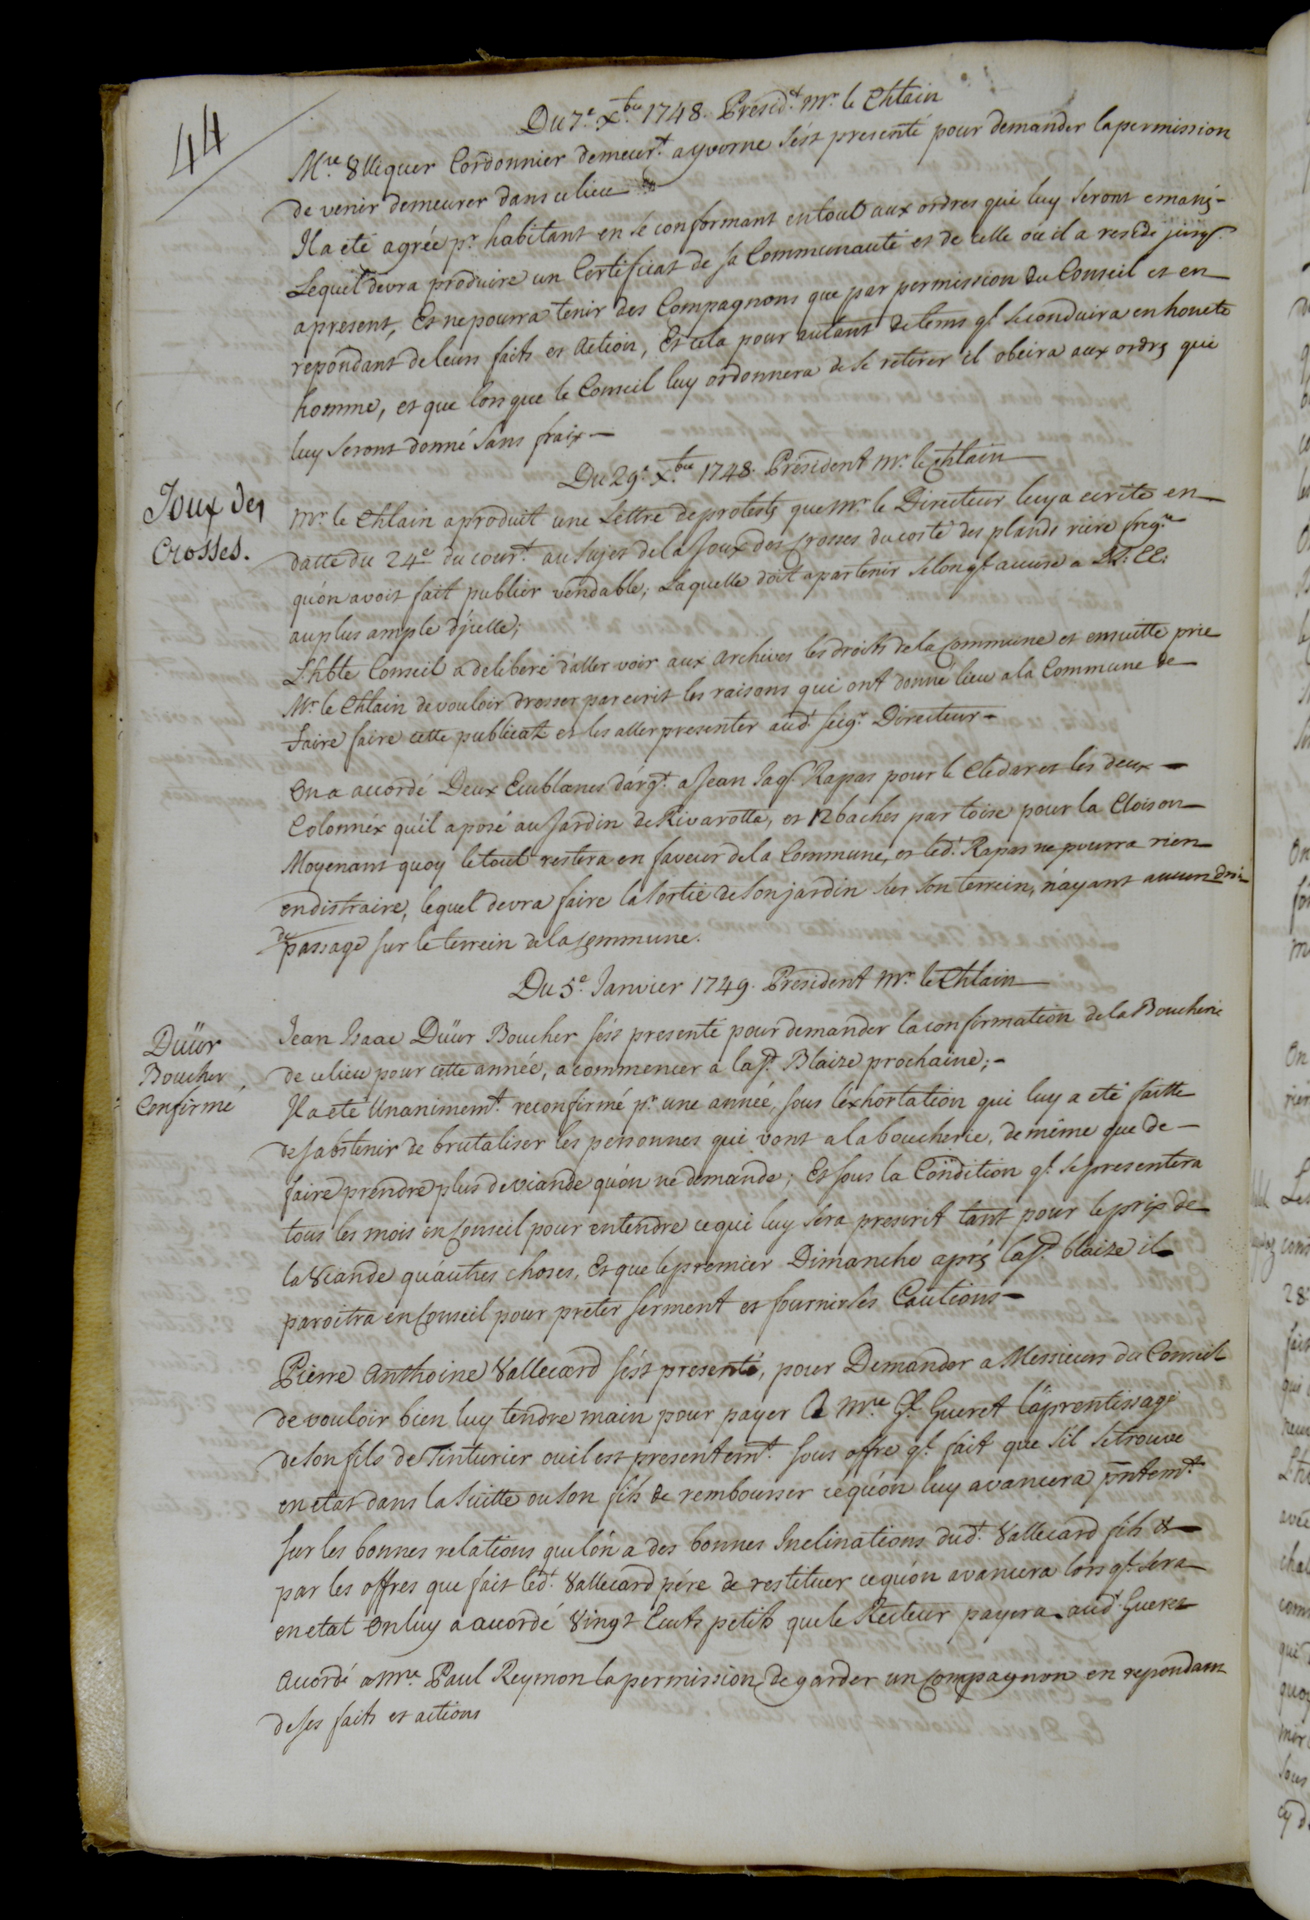 44
Du 7e. Xbre 1748. Présidt. Mr. le Chtlain
Mre. Ulliquer Cordonnier demeurt. a yvorne s'ést presenté pour demander la permission
de venir demeurer dans ce lieu
Il a eté agrée pr. habitant en se conformant en tout aux ordres qui luy seront emanés-
Lequel devra produire un Certificat de sa Communauté et de celle ou il a residé jusqs.
apresent, Et ne pourra tenir des Compagnons que par permission du Conseil et en
repondant de leurs faits et Action, Et cela pour autant de tems ql. se conduira en honete
homme, et que lors que le Conseil luy ordonnera de se retirer il obeira aux ordrs qui
luy seront donné sans fraix-
Du 29e. Xbre 1748. Président Mr. le Chtlain
Joux des
Crosses.
Mr. le Chtlain a produit une Lettre de protests que Mr. le Directeur luy a ecrite en
datte du 24e. du court. au Sujet de la Joux des Crosses du costé des plands riere freqre
qu'on avoit fait publier vendable, Laquelle doit apartenir selon ql. accuse a LL: EE:
au plus ample d'jcelle;
L'hble Conseil a deliberé d'aller voir aux Archives les droits de la Commune et ensuitte prie
Mr. le Chtlain de vouloir dresser par ecrit les raisons qui ont donné lieu a la Commune de
faire faire cette publicat. et les aller presenter aud. seigr. Directeur-
On a accordé Deux Ecublancs d'argt. a Jean Jaqs Rapas pour le Cledar et les deux-
Colonnéx qu'il a posé au Jardin de Rivarotta, et 12 baches par toise pour la Cloison-
Moyenant quoy le tout restera en faveur de la Commune, et led. Rapas ne pourra rien
en distraire, lequel devra faire la sortie de son jardin sur son terrein, n'ayant aucun droi-
de passage sur le terrein de la Commune.
Du 5e. Janvier 1749. Président Mr. le Chtlain
Düür
Boucher
Confirmé
Jean Isaac Düür Boucher s'ést presenté pour demander la confirmation de la Boucherie
de ce lieu pour cette année, a commencer a la St. Blaize prochaine;-
Il a eté Unanimemt. reconfirmé pr. une année, sous l'exhortation qui luy a eté faitte
de s'abstenir de brutaliser les personnes qui vont a la boucherie, de même que de-
faire prendre plus de viande qu'on ne demande; Et sous la Condition ql. se presentera
tous les mois en Conseil pour entendre ce qui luy sera prescrit tant pour le prix de
la Viande qu'autres choses, Et que le premier Dimanche aprés la St. blaize il
paroitra en Conseil pour préter serment et fournir ses Cautions-
Pierre Anthoine Vallecard s'ést presenté, pour Demander a Messieurs du Conseil
de vouloir bien luy tendre main pour payer a Mre. Gl. Gueret l'aprentissage
de son fils de Tinturier ou il est presentemt. sous offre ql. fait que s'il se trouve
en etat dans la suitte ou son fils de rembourser ce qu'on luy avancera pntemt.
Sur les bonnes relations que l'on a des bonnes Inclinations dud. Vallecard fils &
par les offres que fait led. Vallecard pére de restituer ce qu'on avancera lors ql. sera
en etat On luy a accordé Vingt Ecuts petits que le Recteur payera aud. Gueret
Accordé a Mre. Paul Reymon la permission de garder un Compagnon en repondant
de ses faits et actions